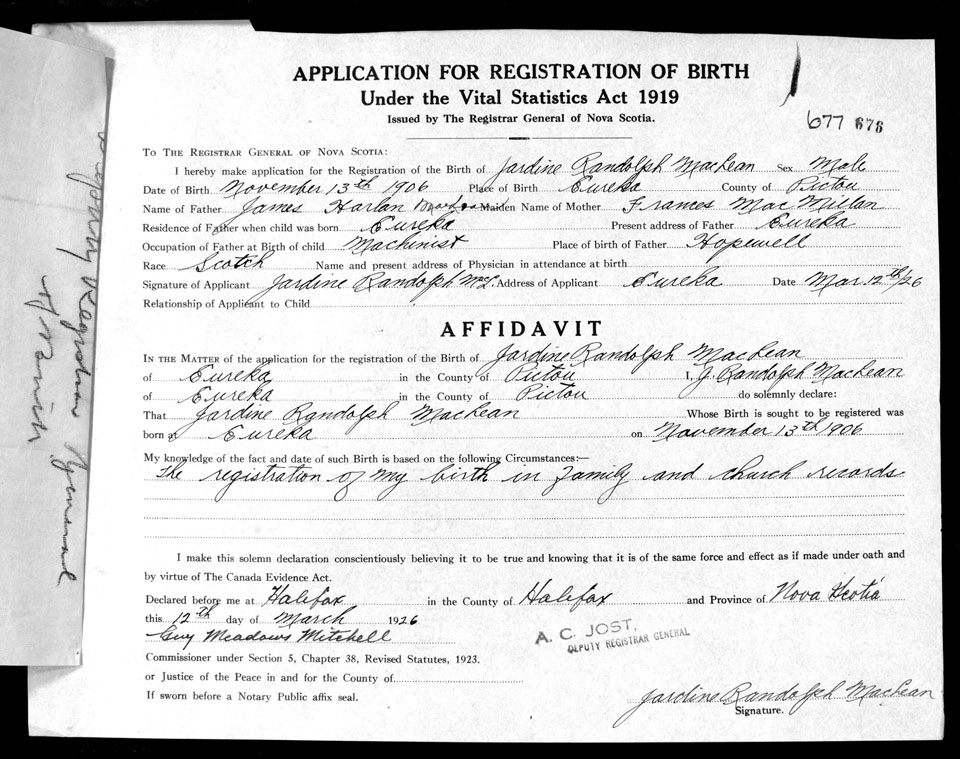 APPLICATION FOR REGISTRATION OF BIRTH
Under the Vital Statistics Act 1919
Issued by The Registrar General of Nova Scotia.
677 676
TO THE REGISTRAR GENERAL OF NOVA SCOTIA:
I hereby make application for the Registration of the Birth of Jardine Randolph MacLean Sex Male
Date of Birth November 13th 1906 Place of Birth Eureka County of Pictou
Name of Father James Harlan Maiden Name of Mother Frances MacMillan
Residence of Father when child was born Eureka Present address of Father Eureka
Occupation of Father at Birth of child Machinist Place of birth of Father Hopewell
Race Scotch Name and present address of Physician in attendance at birth
Signature of Applicant Jardine Randolph McL. Address of Applicant Eureka Date Mar. 12th/26
Relationship of Applicant to Child
AFFIDAVIT
IN THE MATTER of the application for the registration of the Birth of Jardine Randolph MacLean
of Eureka in the County of Pictou I, J. Randolph MacLean
of Eureka in the County of Pictou do solemnly declare:
That Jardine Randolph MacLean Whose Birth is sought to be registered was
born at Eureka on November 13th 1906
My knowledge of the fact and date of such Birth is based on the following Circumstances:—
The registration of my birth in family and church records
I make this solemn declaration conscientiously believing it to be true and knowing that it is of the same force and effect as if made under oath and
by virtue of The Canada Evidence Act.
Declared before me at Halifax in the County of Halifax and Province of Nova Scotia
this 12th day of March 1926
Guy Meadows Mitchell
A. C. JOST,
DEPUTY REGISTRAR GENERAL
Commissioner under Section 5, Chapter 38, Revised Statutes, 1923.
or Justice of the Peace in and for the County of
If sworn before a Notary Public affix seal.
Jardine Randolph MacLean
Signature.
Deputy Registrar General